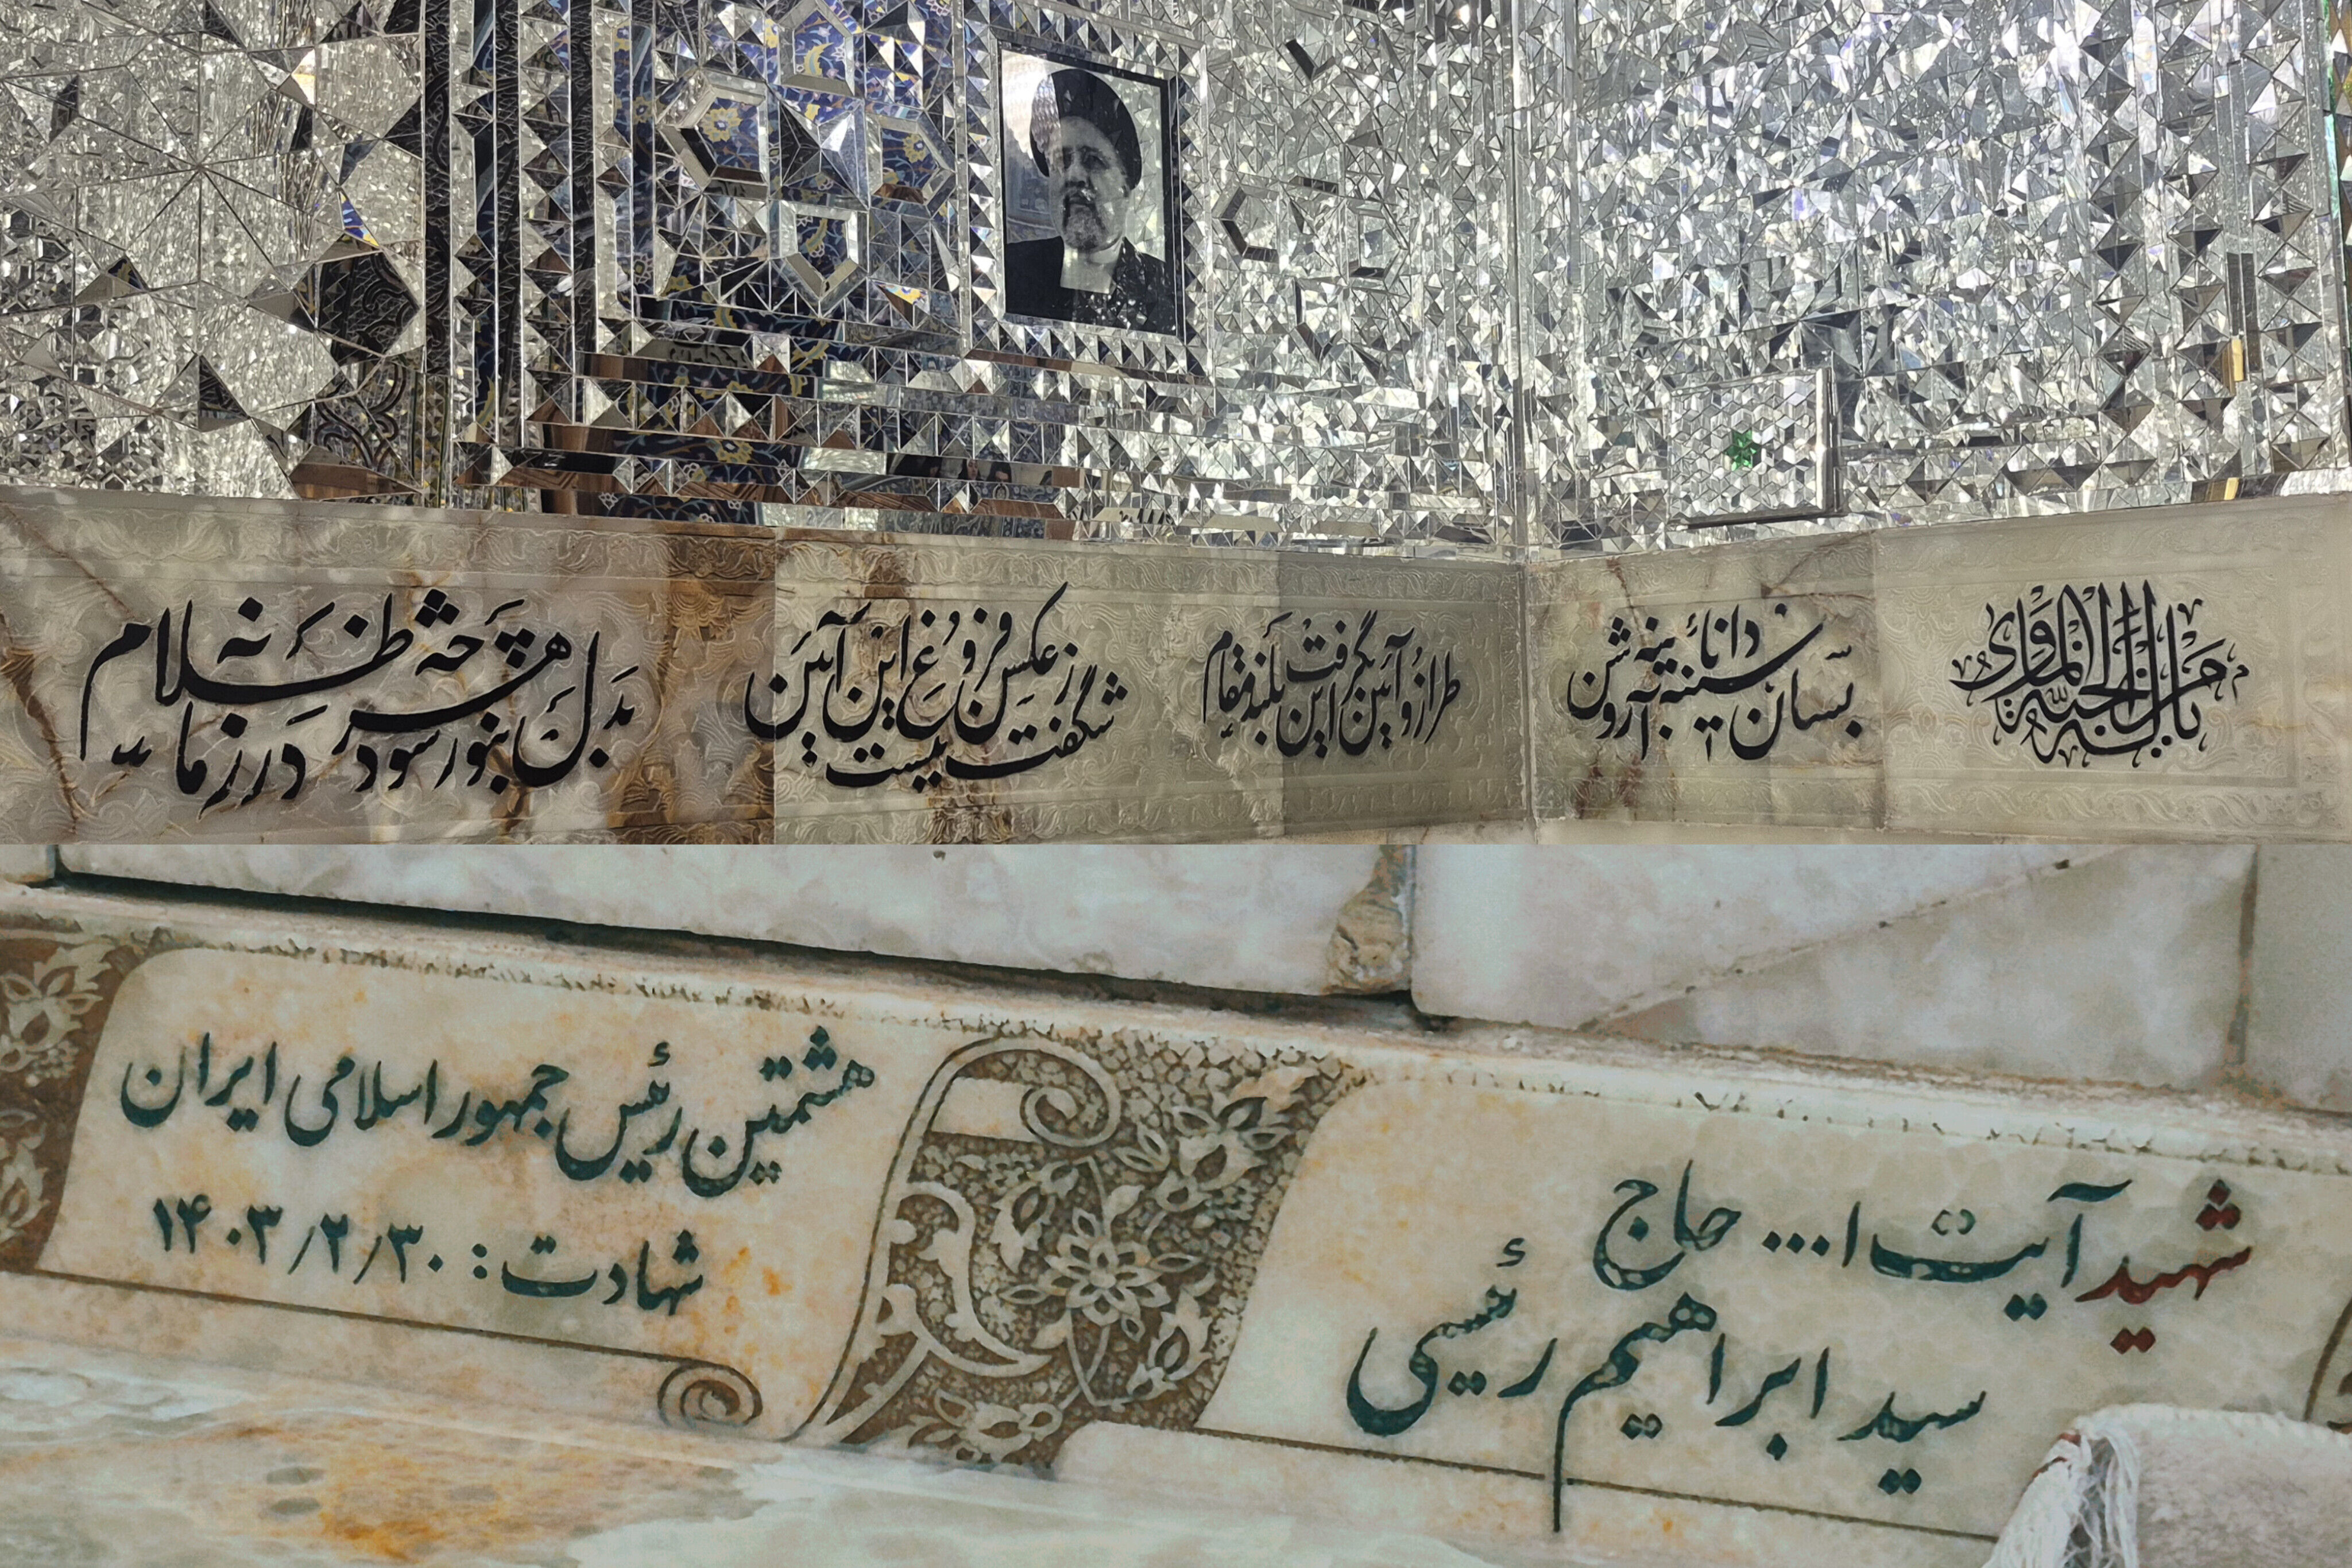 بسان سینهٔ دانا ز آینه روشن
طراز و آئین بگرفت این بلند مقام
شگفت نیست ز عکس فروغ این آئین
بدل بنور شود در زمانه هر چه ظلام
شهید آیت ا... حاج
سید ابراهیم رئیسی
هشتمین رئیس جمهور اسلامی ایران
شهادت: ۱۴۰۳/۲/۳۰